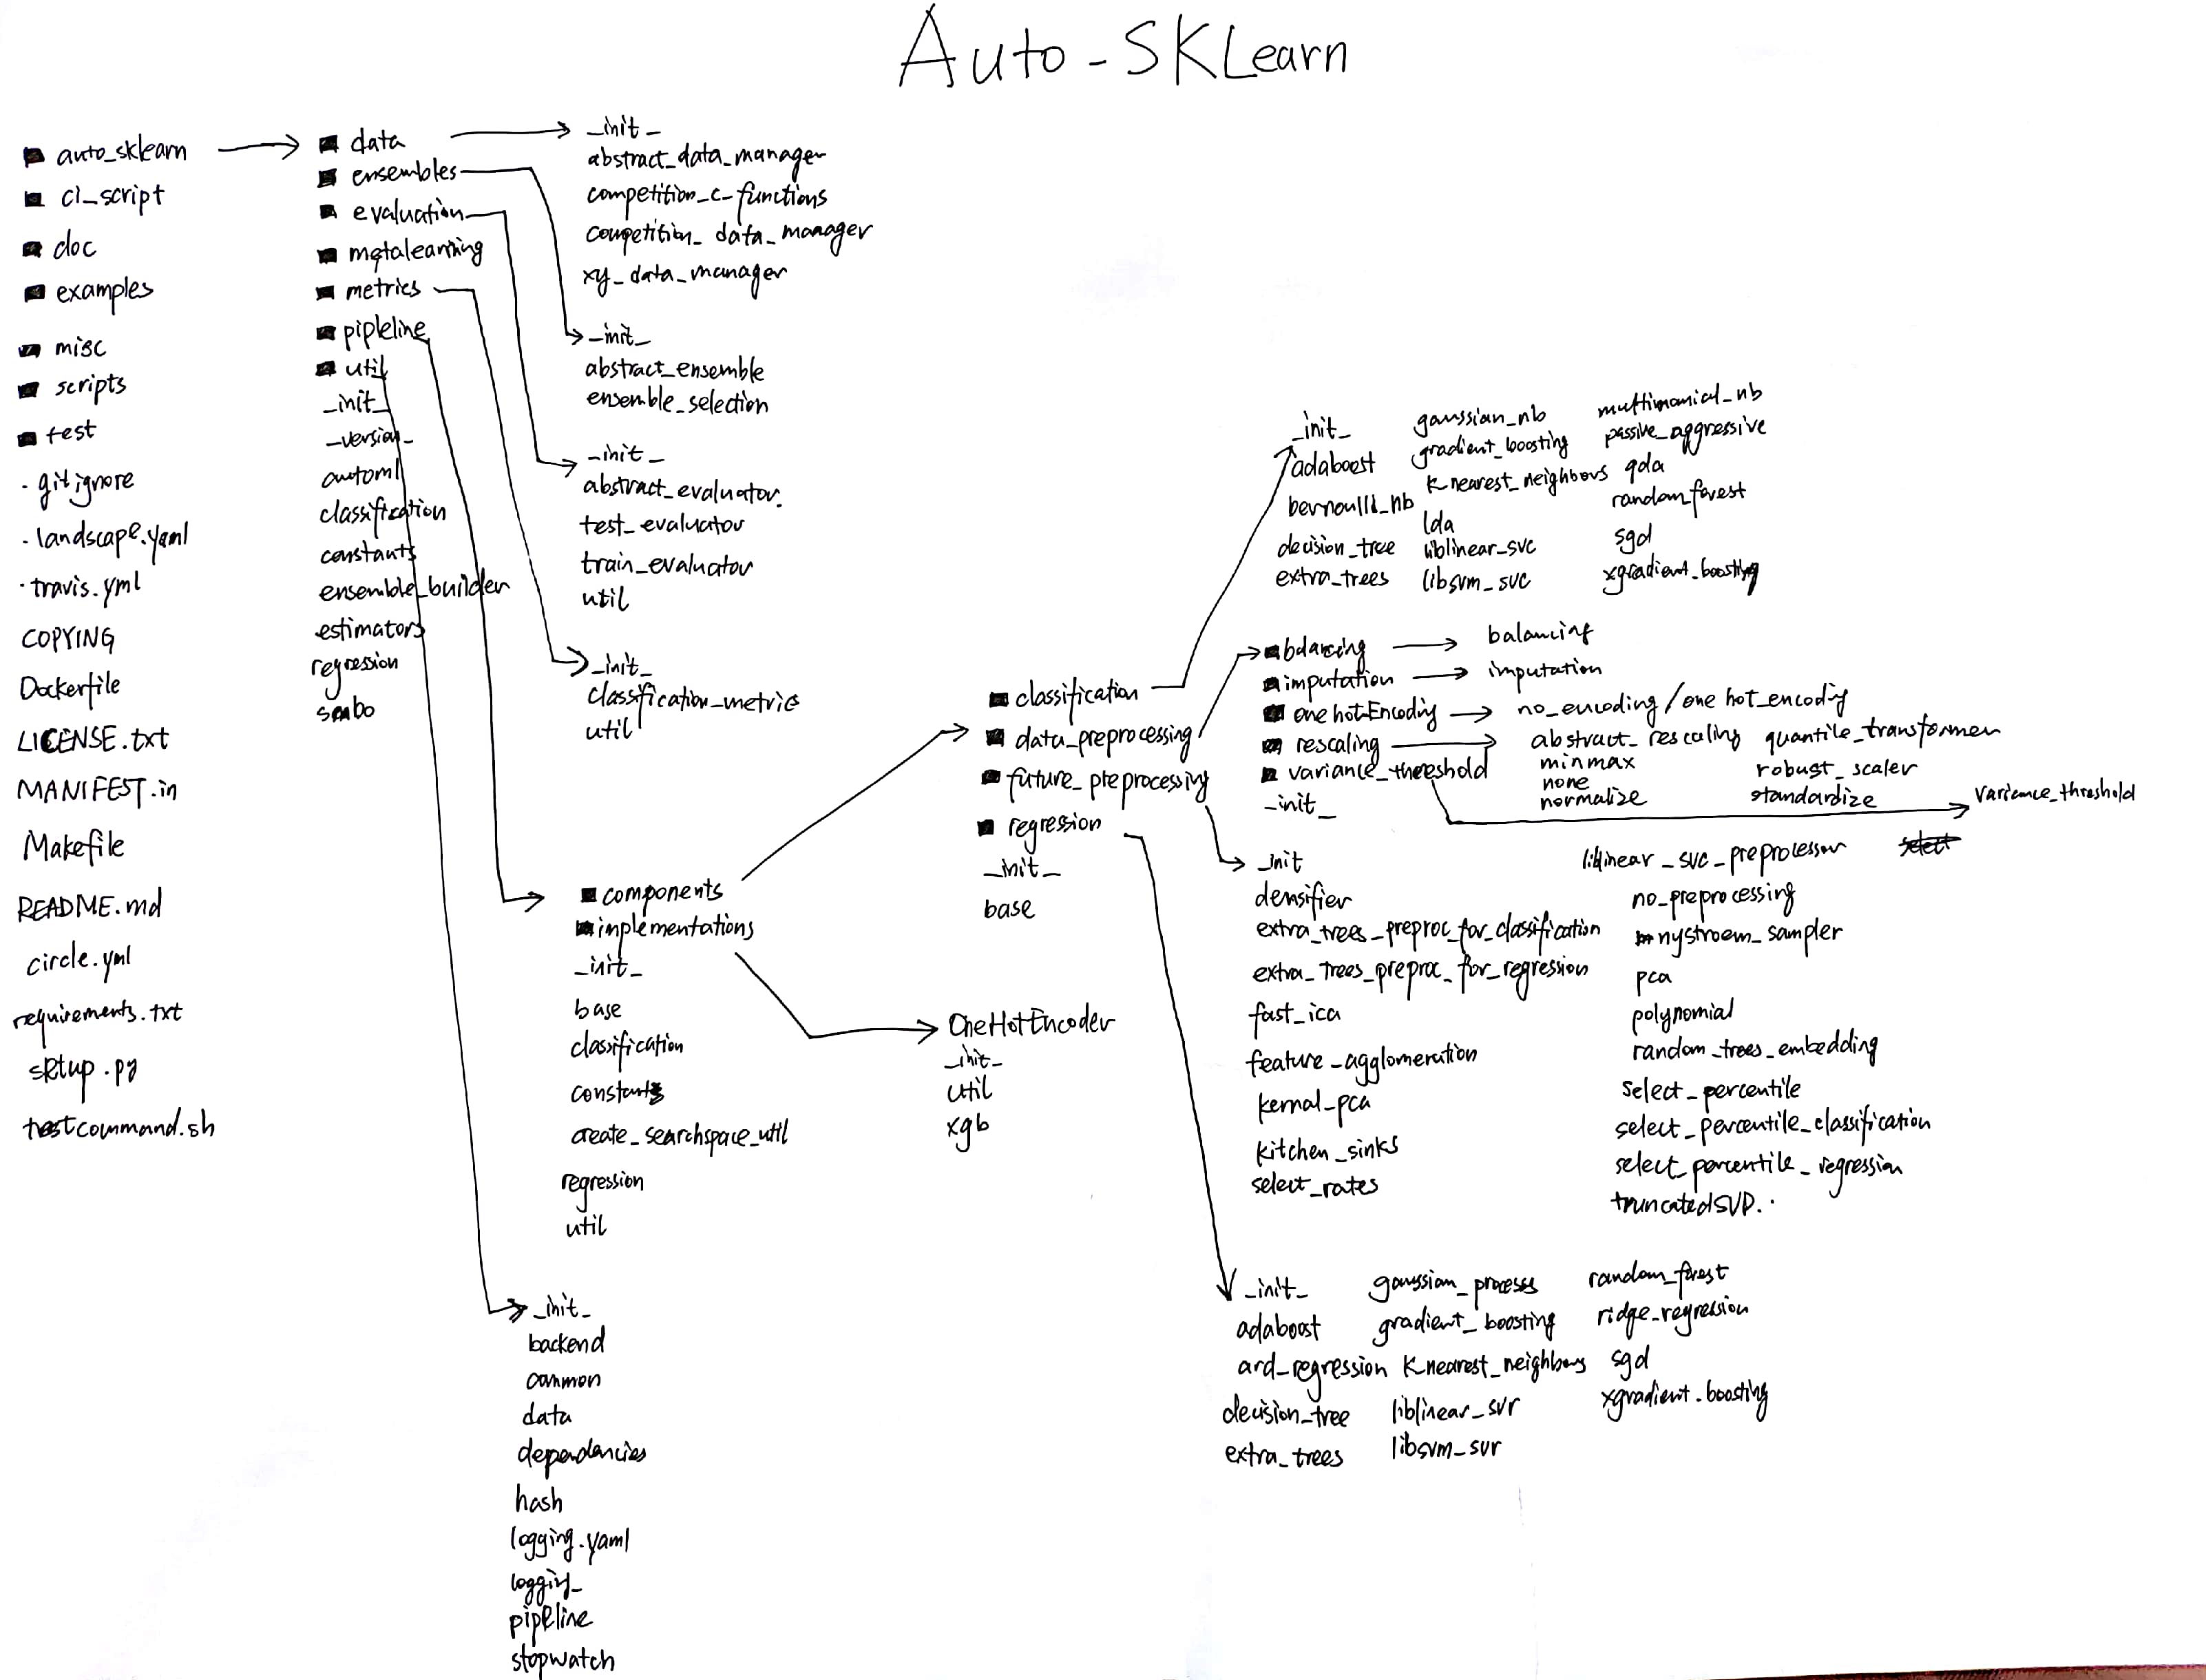 Auto-SKLearn
auto_sklearn
ci_script
doc
examples
misc
scripts
test
.gitignore
.landscape.yaml
.travis.yml
COPYING
Dockerfile
LICENSE.txt
MANIFEST.in
Makefile
README.md
circle.yml
requirements.txt
setup.py
testcommand.sh
data
ensembles
evaluation
metalearning
metrics
pipleline
util
_init_
_version_
automl
classification
constants
ensemble_builder
estimators
regression
_init_
abstract_data_manager
competition_c_functions
competition_data_manager
xy_data_manager
_init_
abstract_ensemble
ensemble_selection
_init_
abstract_evaluator.
test_evaluator
train_evaluator
util
_init_
classification_metric
util
components
implementations
_init_
base
classification
constants
create_searchspace_util
regression
util
_init_
backend
common
data
dependencies
hash
logging.yaml
logging_
pipeline
stopwatch
classification
data_preprocessing
future_preprocessing
regression
_init_
base
OneHotEncoder
_init_
util
xgb
_init_
adaboost
bernoulli_nb
decision_tree
extra_trees
gaussian_nb
gradient_boosting
K_nearest_neighbors
lda
liblinear_svc
libsvm_svc
multimonial_nb
passive_aggressive
qda
random_forest
sgd
xgradient_boosting
balancing balancing
imputation imputation
one hot Encoding no_encoding / one hot_encoding
rescaling abstract_rescaling quantile_transformer
minmax robust_scaler
none
normalize standardize
variance_threshold variance_threshold
_init_
_init
densifier
extra_trees_preproc_for_classification
extra_trees_preproc_for_regression
fast_ica
feature_agglomeration
kernal_pca
kitchen_sinks
select_rates
liblinear_svc_preprocessor
no_preprocessing
nystroem_sampler
pca
polynomial
random_trees_embedding
select_percentile
select_percentile_classification
select_percentile_regression
truncatedSVD.
_init_
adaboost
ard_regression
decision_tree
extra_trees
gaussian_process
gradient_boosting
K_nearest_neighbors
liblinear_svr
libsvm_svr
random_forest
ridge_regression
sgd
xgradient.boosting